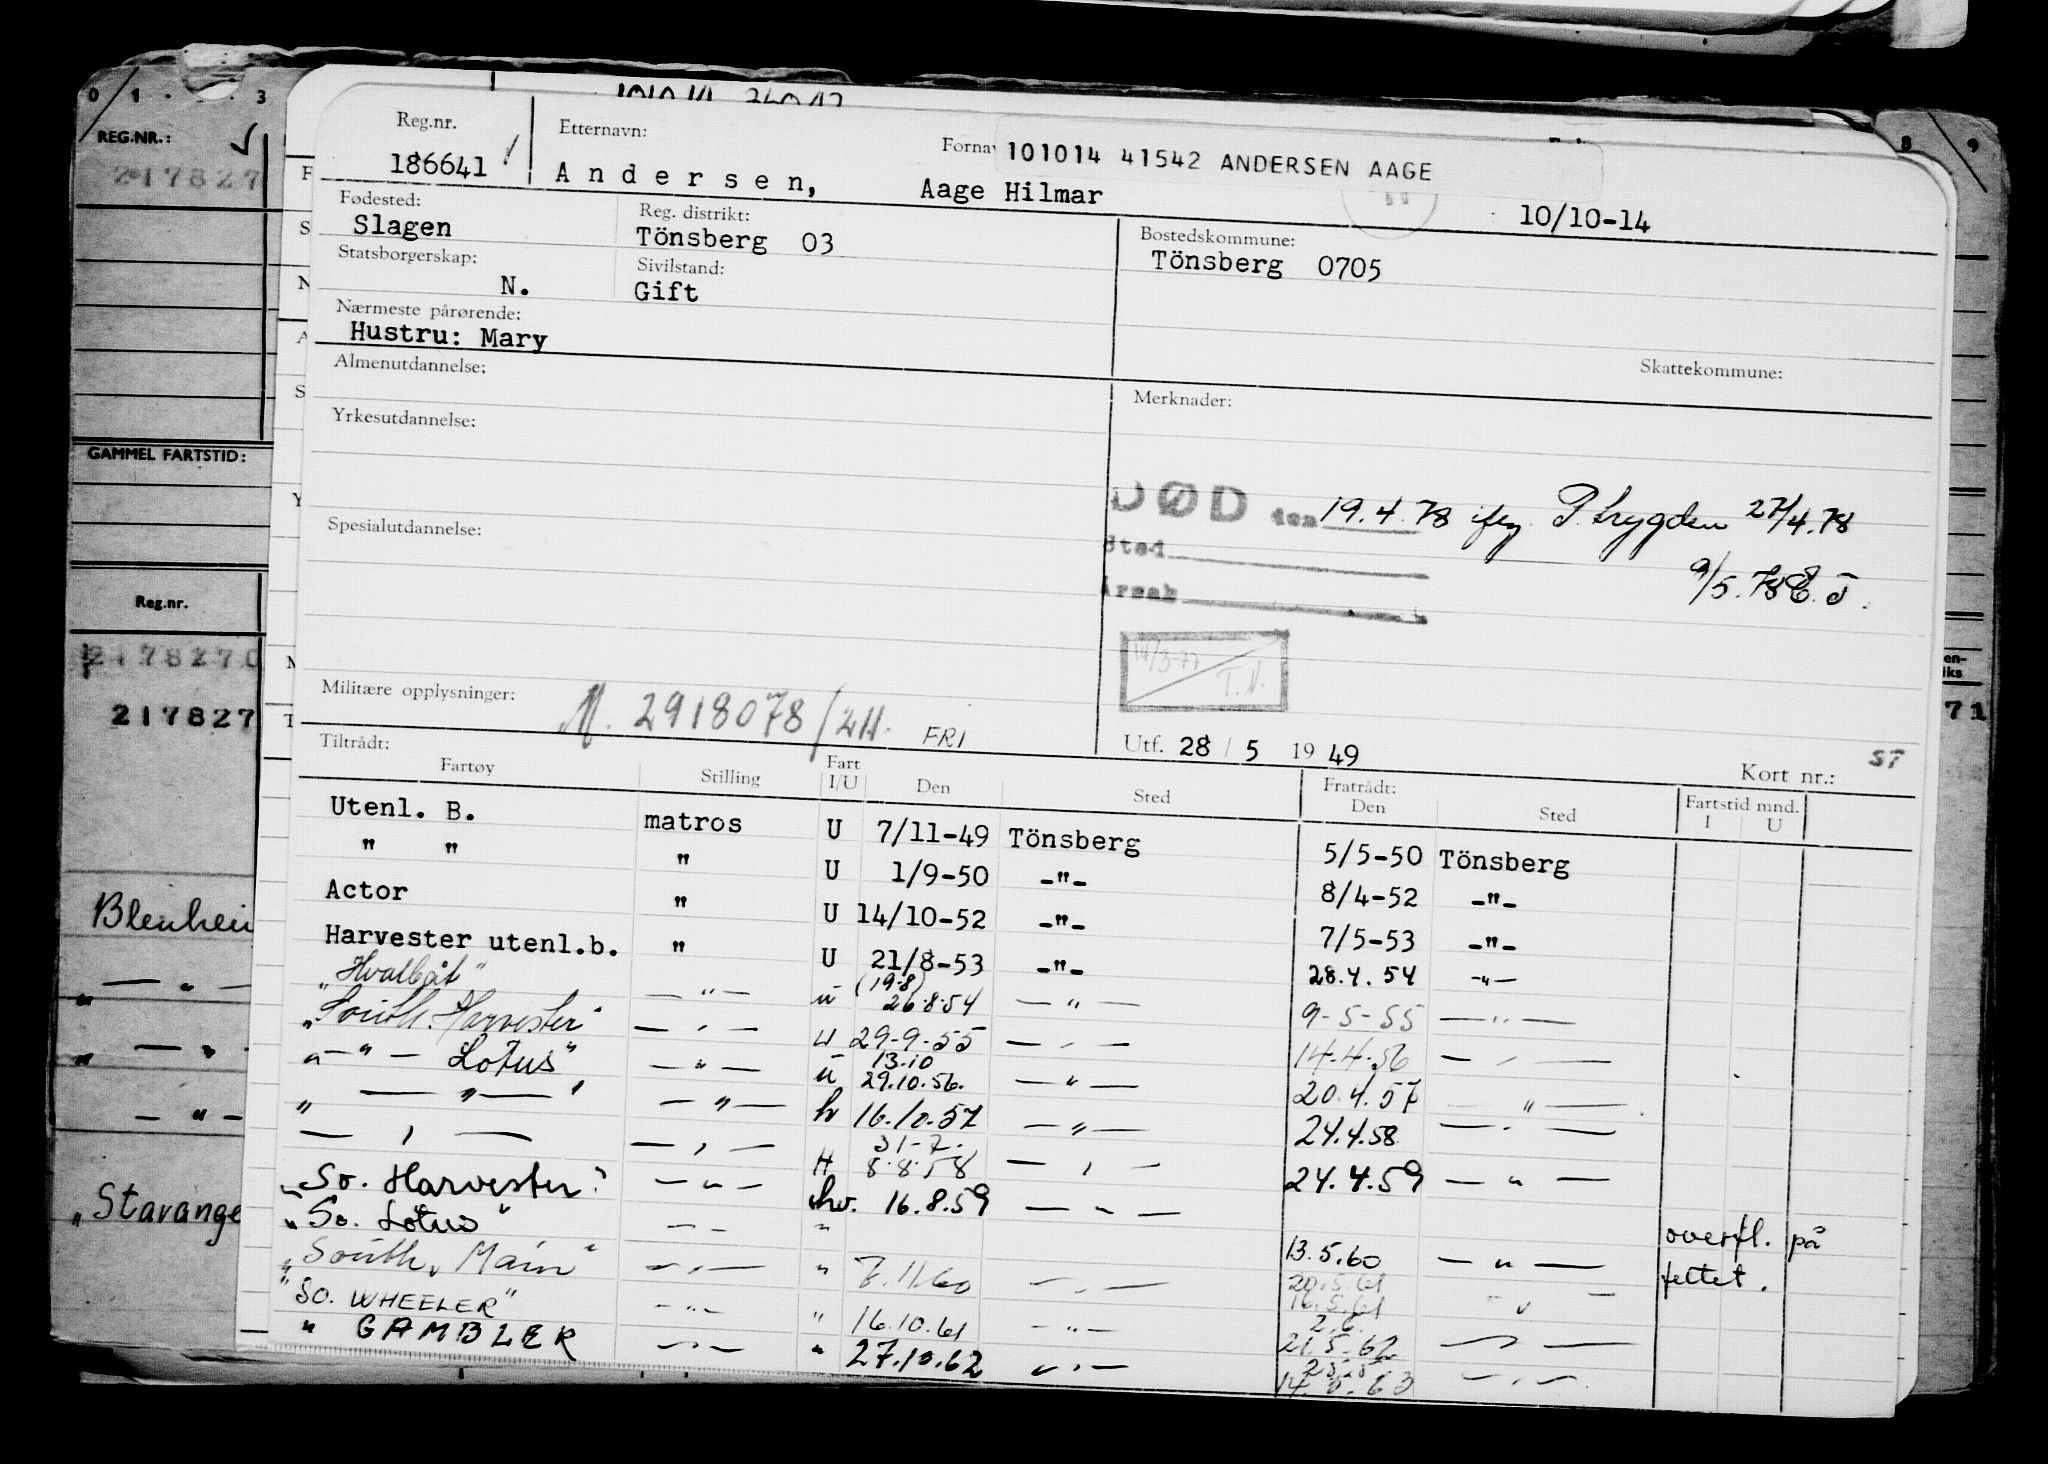 0 1 . . 3
8 9
REG.NR.:
217827
GAMMEL FARTSTID:
Reg.nr.
217827
Blenhein
— " —
— " —
— " —
"Stavange
71
Reg.nr. Etternavn: Forna 101014 41542 ANDERSEN AAGE
186641 Andersen, Aage Hilmar 10/10-14
Fødested: Reg. distrikt: Bostedskommune:
Slagen Tönsberg 03 Tönsberg 0705
Statsborgerskap: Sivilstand:
N. Gift
Nærmeste pårørende:
Hustru: Mary
Skattekommune:
Almenutdannelse: Merknader:
Yrkesutdannelse:
DØD den 19.4.78 iføg. P.trygden 27/4.78
Spesialutdannelse: Sted
9/5.78 E.J.
Årsak
14/3-77
T.N.
Militære opplysninger: M. 2918078/2H. FRI
Utf. 28 / 5 19 49 Kort nr.: ST
Tiltrådt: Fratrådt:
Fartøy Stilling Fart I/U Den Sted Den Sted Fartstid mnd. I U
Utenl. B. matros U 7/11-49 Tönsberg 5/5-50 Tönsberg
" " " U 1/9-50 -"- 8/4-52 -"-
Actor " U 14/10-52 -"- 7/5-53 -"-
Harvester utenl.b. " U 21/8-53 -"- 28.4.54 -"-
"Hvalbåt" —"— u (19.8) 26.8.54 —"— 9-5-55 —"—
"South. Harvester" —"— U 29-9-55 —"— 14.4.56 —"—
"—"— Lotus" —"— u 13.10 29.10.56. —"— 20.4.57 —"—
" —"— " —"— hv 16.10.57 —"— 24.4.58 —"—
— " — —"— H 31-7. 8.8.58 —"— 24.4.59 —"—
"So. Harvester" —"— hv. 16.8.59 —"—
"So. Lotus" —"— " 13.5.60 —"— overfl. på feltet.
"South. Main" —"— " 7.11.60 —"— 20.5.61 16.5.61 —"—
"SO. WHEELER" —"— " 16.10.61 —"— 2.6. 21.5.62 —"—
" GAMBLER —"— " 27.10.62 —"— —"—